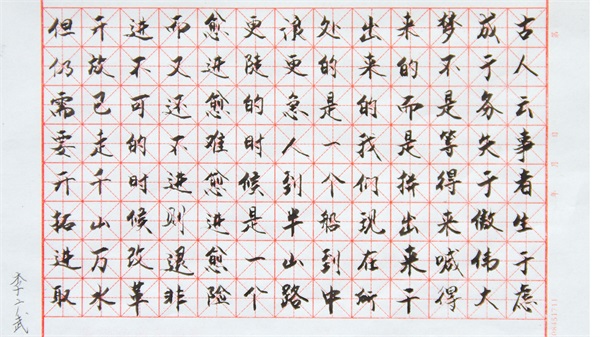 古人云事者生于虑
成于务失于傲伟大
梦不是等得来喊得
来的而是拼出来干
出来的我们现在所
处的是一个船到中
浪更急人到半山路
更陡的时候是一个
愈进愈难愈进愈险
而又还不进则退非
进不可的时候改革
开放已走千山万水
但仍需要开拓进取